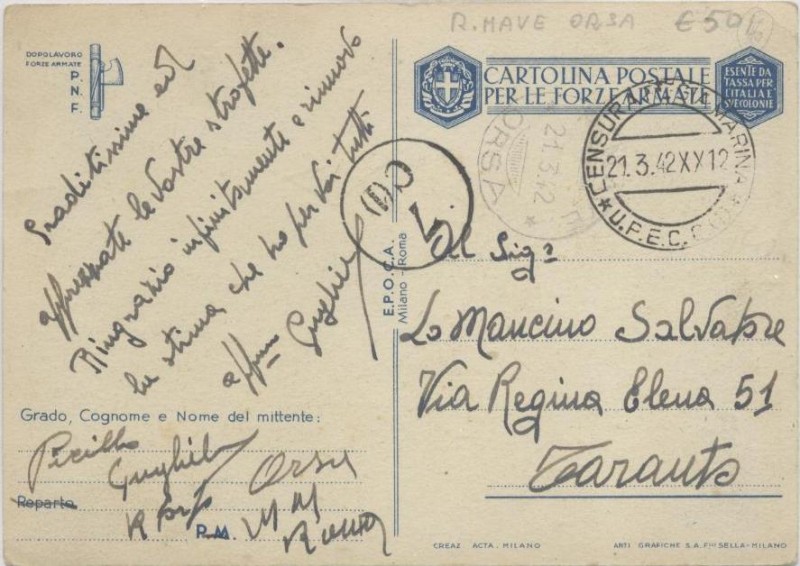 R. NAVE ORSA € 50
DOPOLAVORO
FORZE ARMATE
P.
N.
F.
CARTOLINA POSTALE
PER LE FORZE ARMATE
ESENTE DA
TASSA PER
L'ITALIA E
SUE COLONIE
ORSA
21.3.42
CENSURA MARINA
21.3.42XX12
U.P.E.C.
Graditissime ed
apprezzate le vostre strofette.
Ringrazio infinitamente e rinnovo
la stima che ho per voi tutti
affmo Guglielmo
(1)
E.P.O.C.A.
Milano - Roma
Al Sigr
Lo Mancino Salvatore
Via Regina Elena 51
Taranto
Grado, Cognome e Nome del mittente:
Picillo
Guglielmo
Orsa
Reparto
P.M.
Roma
CREAZ ACTA. MILANO
ARTI GRAFICHE S.A. FLLI SELLA-MILANO